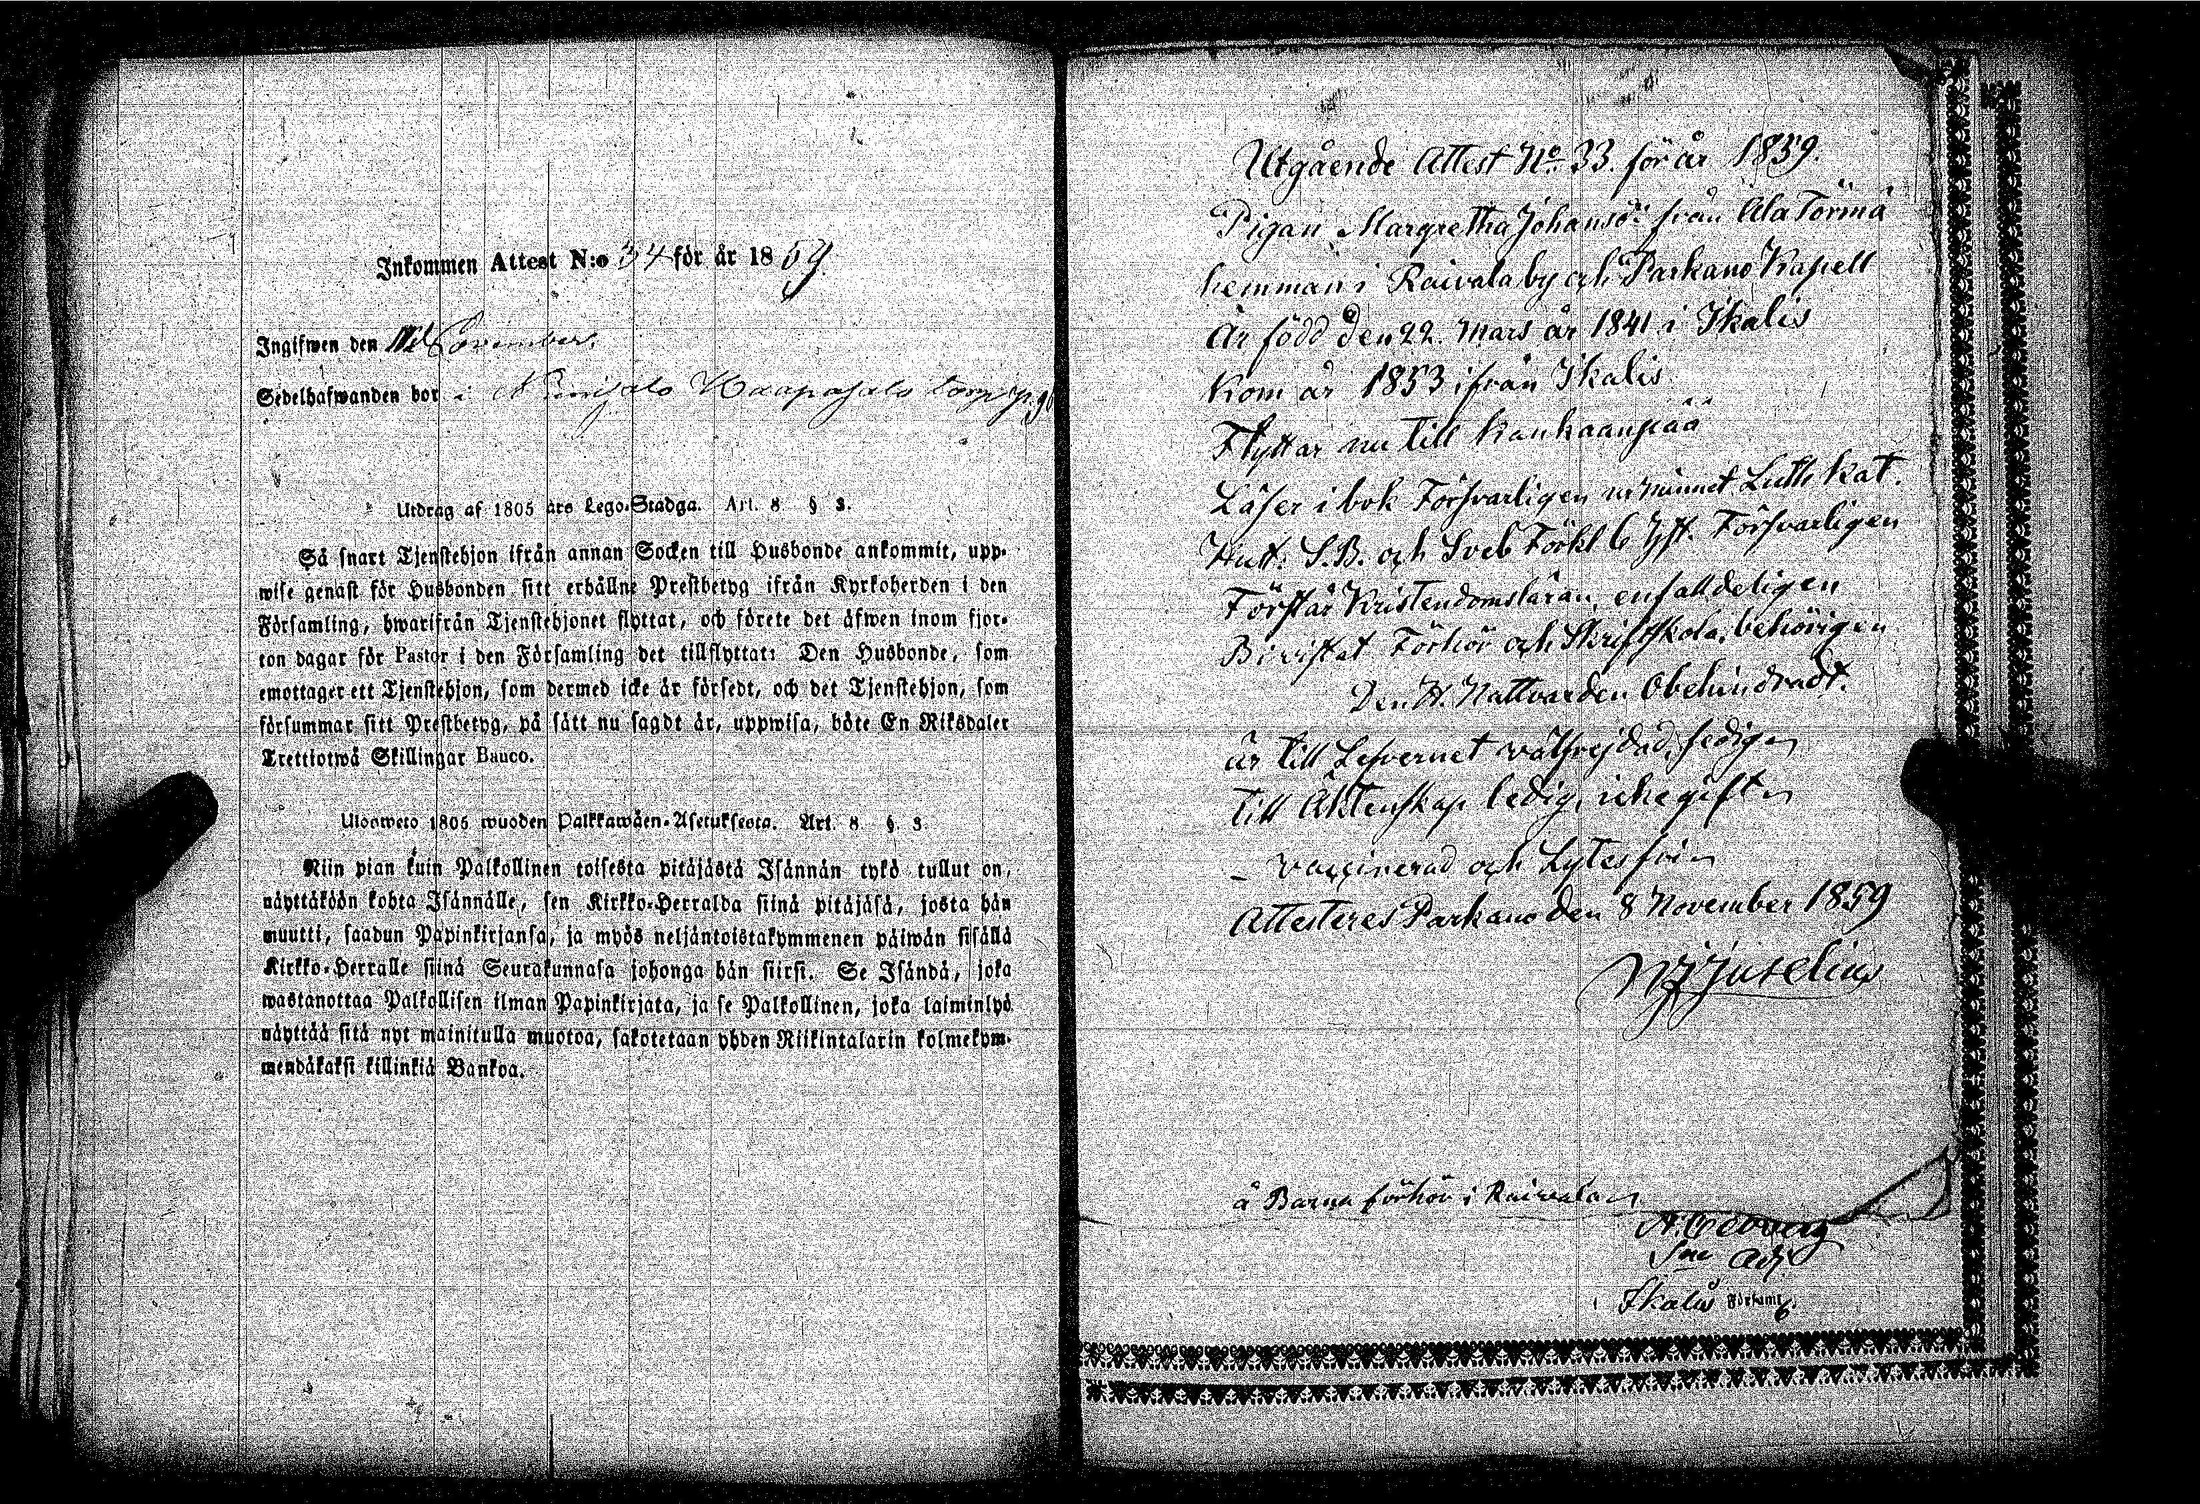 Inkommen Attest N:o 34 för år 1859.
Ingifwen den November.
Sedelhafwanden bor i torp
Utdrag af 1805 års Lego-Stadga. Art. 8 § 3.
Så snart Tjenstehjon ifrån annan Socken till Husbonde ankommit, upp-
wise genast för Husbonden sitt erhållne Prestbetyg ifrån Kyrkoherden i den
Församling, hwarifrån Tjenstehjonet flyttat, och förete det äfwen inom fjor-
ton dagar för Pastor i den Församling det tillflyttat: Den Husbonde, som
emottager ett Tjenstehjon, som dermed icke är försedt, och det Tjenstehjon, som
försummar sitt Prestbetyg, på sätt nu sagdt är, uppwisa, böte En Riksdaler
Trettiotwå Skillingar Banco.
Ulosweto 1805 wuoden Palkkawäen-Asetuksesta. Art. 8 §. 3.
Niin pian kuin Palkollinen toisesta pitäjästä Isännän tykö tullut on,
näyttäköön kohta Isännälle, sen Kirkko-Herralda siinä pitäjäsä, josta hän
muutti, saadun Papinkirjansa, ja myös neljäntoistakymmenen päiwän sisällä
Kirkko-Herralle siinä Seurakunnasa johonga hän siirsi. Se Isändä, joka
wastanottaa Palkollisen ilman Papinkirjata, ja se Palkollinen, joka laiminlyö
näyttää sitä nyt mainitulla muotoa, sakotetaan yhden Riikintalarin kolmekym-
mendäkaksi killinkiä Bankoa.
Utgående Attest No 33. för år 1859.
Pigan Margretha Johansdr från Ala Törmä
hemman i Raivala by och Parkano Kapell
Är född den 22. Mars år 1841 i Ikalis
Kom år 1853 ifrån Ikalis
Flyttar nu till Kankaanpää
Läser i bok Försvarligen ur minnet Luth Kat.
Hust: S.B. och Sveb Förkl 6 Försvarligen
Förstår Kristendomsläran enfalldeligen
Bivistat Förhör och Skriftskola behörigen
Den H. Nattvarden Obehindradt.
är till Lefvernet välfrejdad, fedig
till Äktenskap ledig, icke gift
vaccinerad och Lytesfri
Attesteres Parkano den 8 November 1859
Juselius
å Barna förhör i Raivala
Adj
i Ikalis Församl